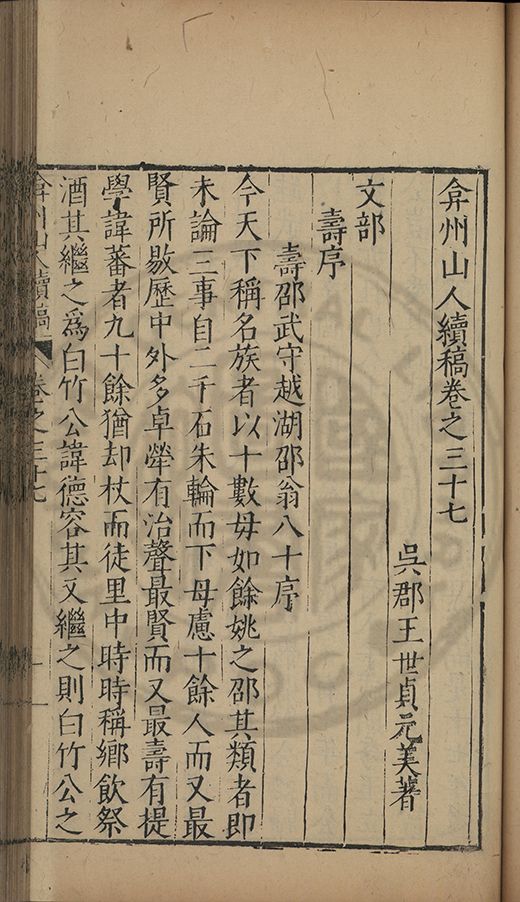 弇州山人續稿卷之三十七
吳郡王世貞元美著
文部
壽序
壽邵武守越湖邵翁八十序
今天下稱名族者以十數毋如餘姚之邵其類者即
未論三事自二千石朱輪而下毋慮十餘人而又最
賢所敭歷中外多卓犖有治聲最賢而又最壽有提
學諱蕃者九十餘猶却杖而徒里中時時稱鄉飲祭
酒其繼之爲白竹公諱德容其又繼之則白竹公之
弇州山人續稿 卷之三十七